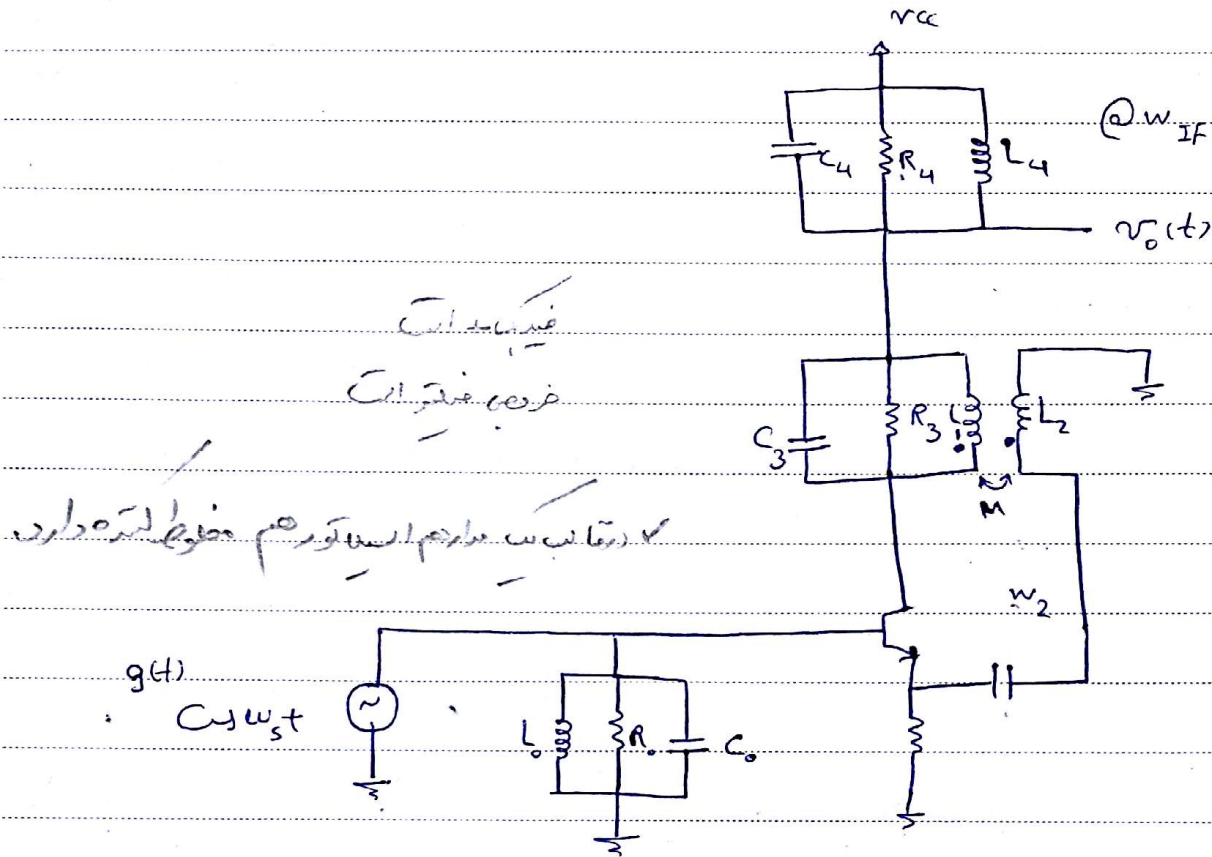 vcc
@ w IF
C4
R4
L4
vo(t)
فیدبک است
خروجی فیلتر است
C3
R3
L1
L2
M
✓ در قالب یک مدار هم اسیلاتور هم مخلوط کننده داریم
w2
g(t)
Cos wst
Lo
Ro
Co